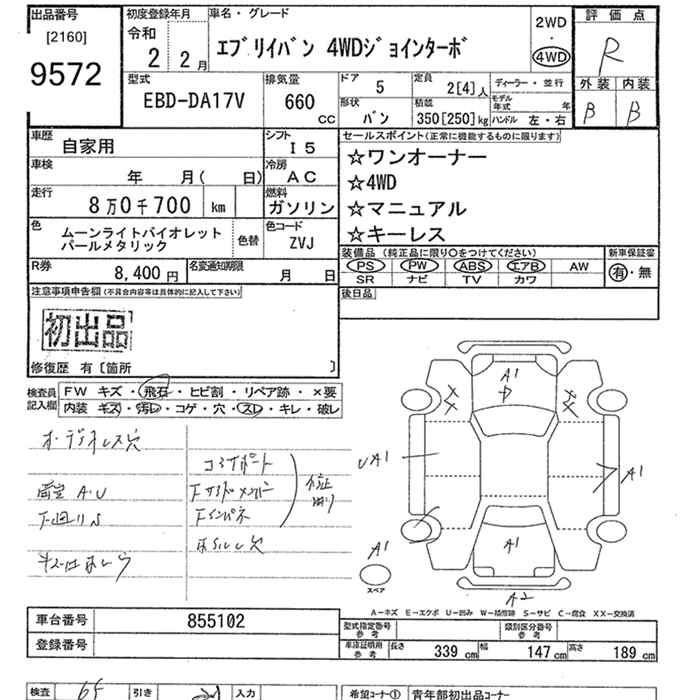 出品番号 初度登録年月 車名・グレード 2WD・4WD 評価点
[2160] 令和
9572 2 2月 エブリイバン 4WDジョインターボ R
型式 排気量 ドア 5 定員 2[4]人 ディーラー・並行 外装 内装
EBD-DA17V 660 CC 形状 バン 積載 350[250]kg モデル年式 年 ハンドル 左・右 B B
車歴 自家用 シフト I5 セールスポイント(正常に機能するものに限ります)
車検 年 月( 日) 冷房 AC ☆ワンオーナー
走行 8万0千700 km 燃料 ガソリン ☆4WD
☆マニュアル
色 ムーンライトバイオレット 色替 色コード ☆キーレス
パールメタリック ZVJ
装備品 (純正品に限り○をつけてください) 新車保証書
R券 8,400円 名変通知期限 月 日 PS PW ABS エアB AW 有・無
SR ナビ TV カワ
注意事項申告欄 (不具合内容等は具体的に記入して下さい) 後日品
初出品
修復歴 有〔箇所 〕
検査員記入欄 FW キズ・飛石・ヒビ割・リペア跡・×要
内装 キズ・汚レ・コゲ・穴・スレ・キレ・破レ
A1
オーディオレス穴
コラムサポート
UA1 A1
A・U
A1 A1
スペア
A2
A-キズ E-エクボ U-凹み W-補修跡 S-サビ C-腐食 XX-交換済
車台番号 855102 型式指定番号 参考 類別区分番号 参考
登録番号 車庫証明用 参考 長さ 339 cm 幅 147 cm 高さ 189 cm
検査 65 引き 入力 希望コーナー① 青年部初出品コーナー